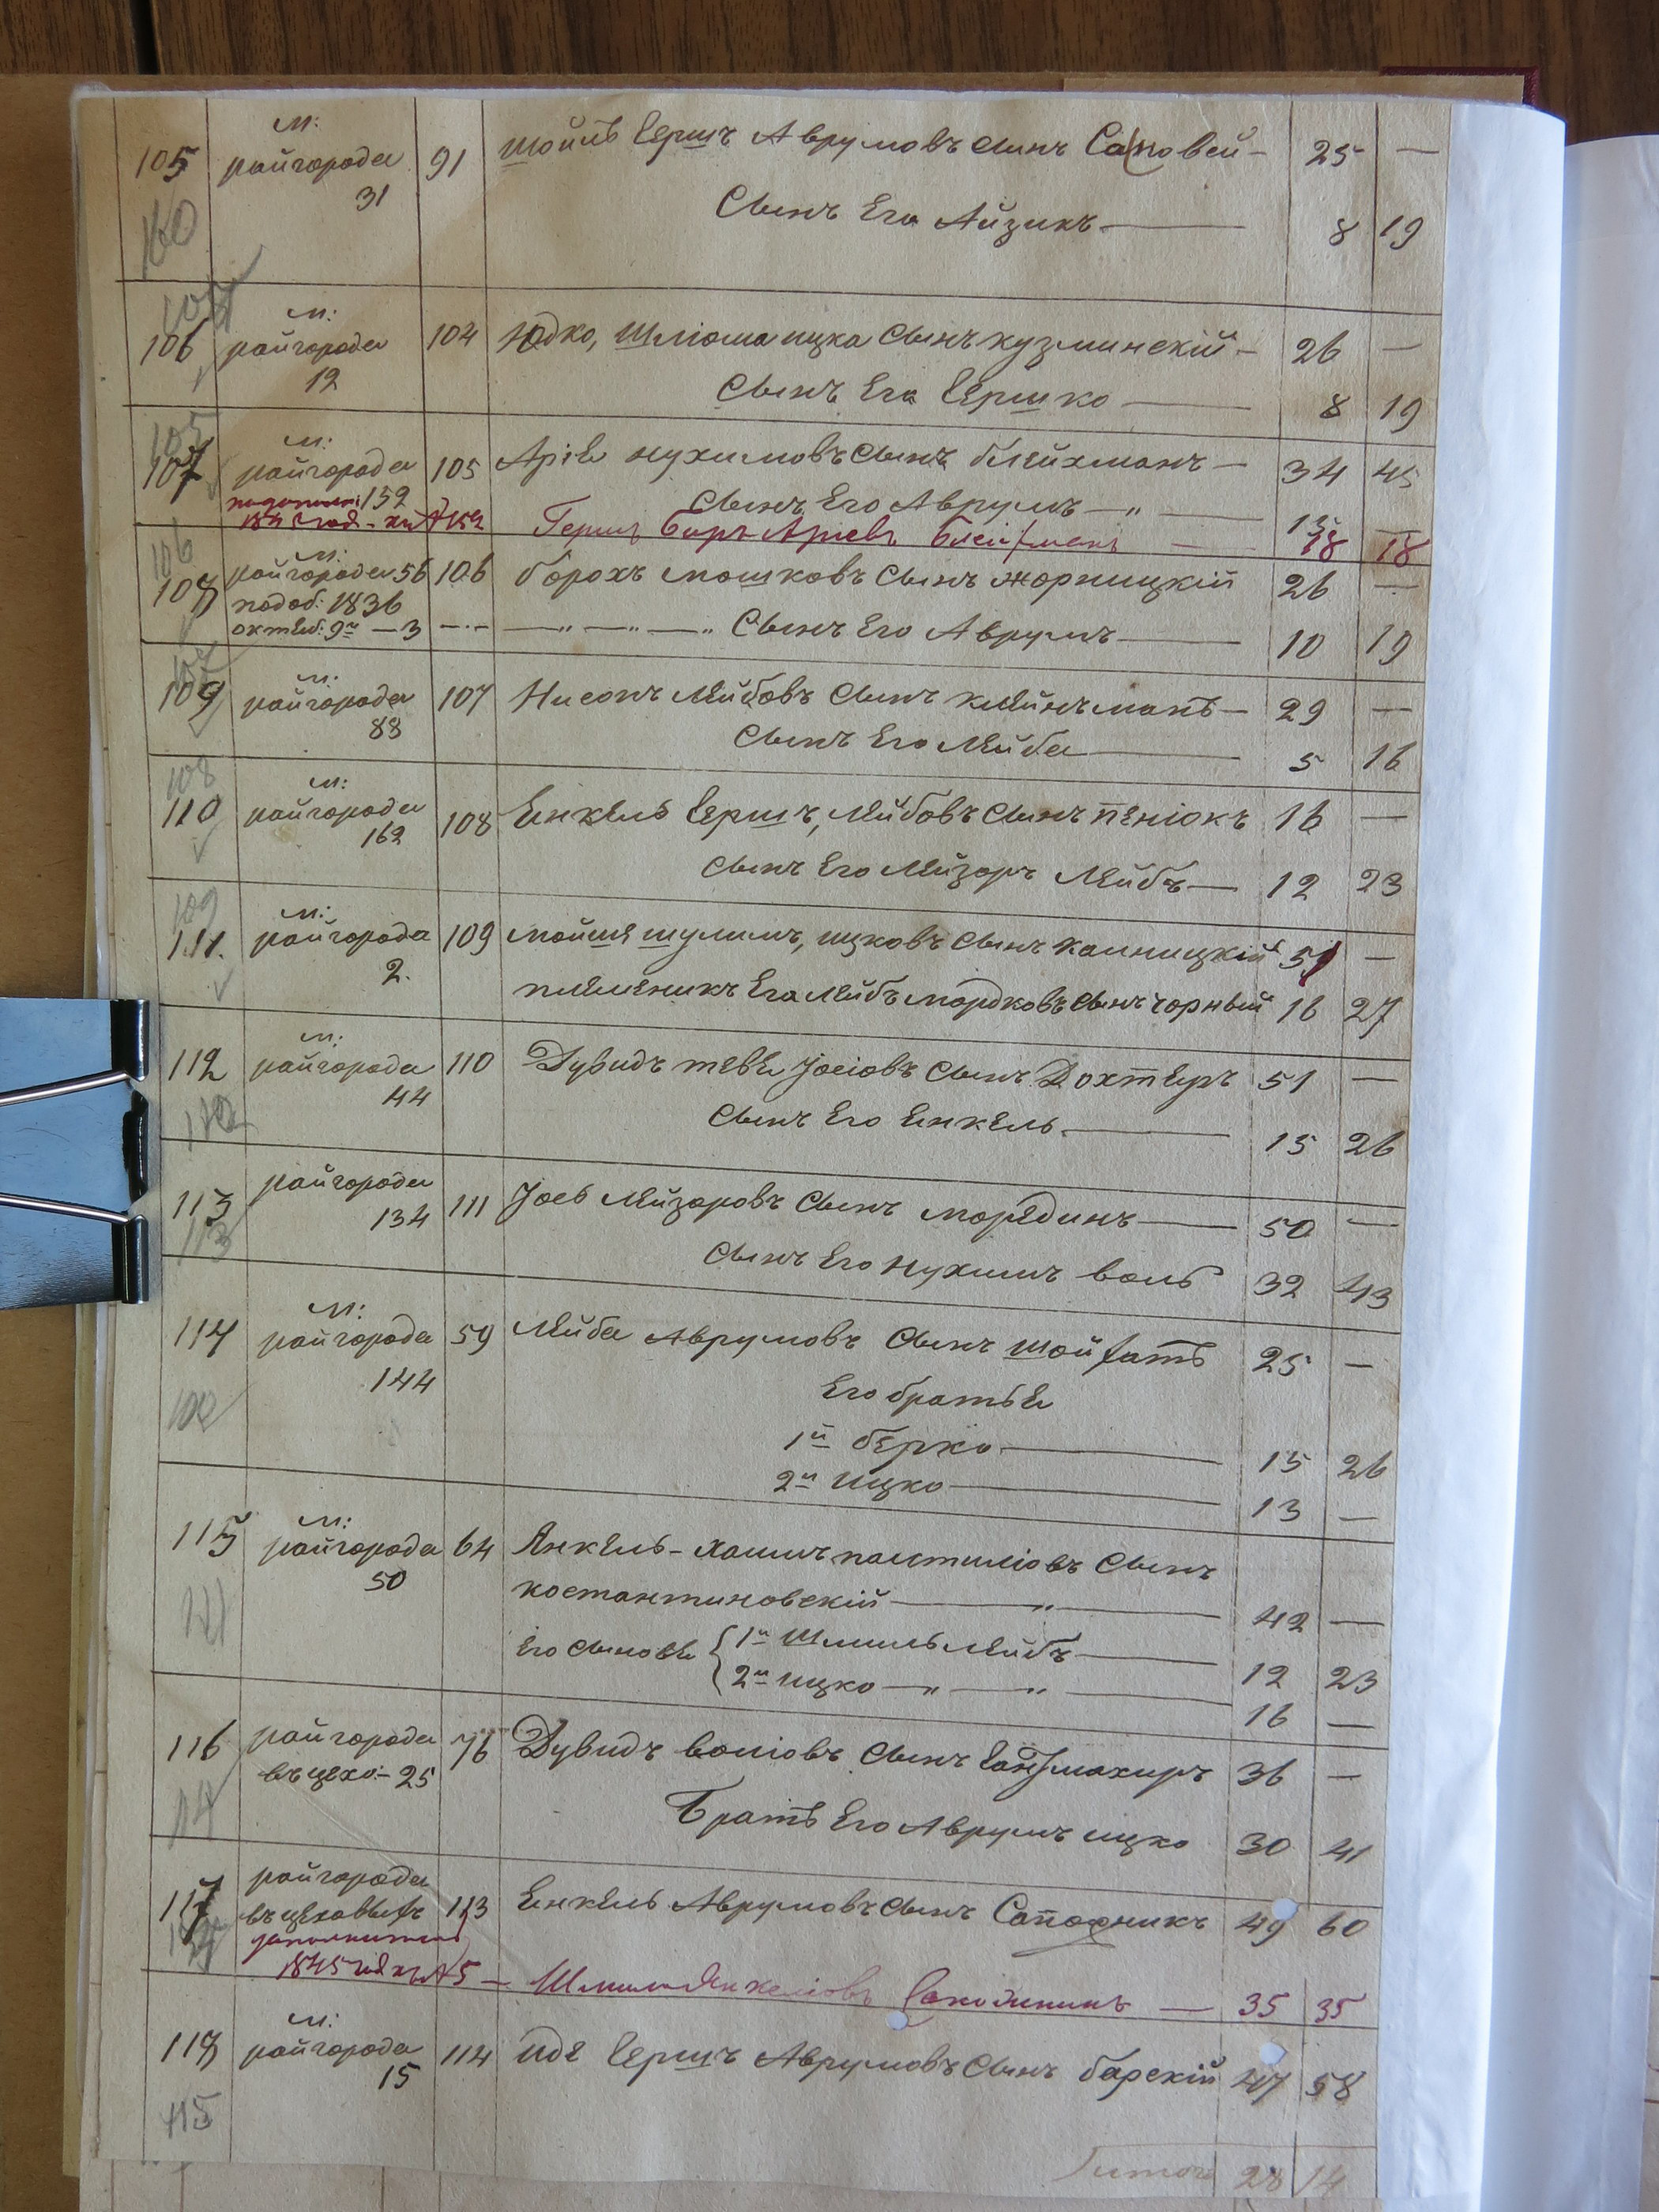 105 м: райгорода 31 91 шойлъ Гершъ Аврумовъ сынъ 25 —
160 Сынъ Его Айзикъ — 8 19
106 м: райгорода 12 104 Юдко, шлiома ицка Сынъ кузминскiй — 26 —
Сынъ Его Гершко — 8 19
105
107 м: райгорода 152 105 Арiе нухимовъ Сынъ блейхманъ — 34 45
Сынъ Его Аврумъ — „ — 13
№ 152 Герш Беръ Арiевъ — 18 18
106
108 м: райгорода 56 106 борохъ мошковъ Сынъ жорницкiй 26 —
подоб: 1836
октеб: 9го — 3 —„— —„— —„ Сынъ Его Аврумъ — 10 19
107
109 м: райгорода 88 107 Нисонъ Лейбовъ Сынъ клейнъманъ — 29 —
Сынъ Его Лейба — 5 16
108
110 м: райгорода 162 108 Енкель Гершъ, Лейбовъ Сынъ пенiокъ 16 —
Сынъ Его Лейзоръ Лейбъ — 12 23
109
111. м: райгорода 2. 109 мойше шулимъ, ицковъ Сынъ каницкiй 51 —
племеникъ Его Лейбъ мордковъ Сынъ чорный 16 27
112 м: райгорода 44 110 Дувидъ теве Iосiовъ Сынъ Дохтеръ 51 —
Сынъ Его Енкель — 15 26
113 райгорода 134 111 Iось Лейзоровъ Сынъ моредикъ — 50 —
113 Сынъ Его нухимъ воль 32 43
114 м: райгорода 144 59 Лейба Аврумовъ Сынъ шойхатъ 25 —
Его братье
1й берко — 15 26
2й ицко — 13 —
115 м: райгорода 50 64 Янкель-хаимъ Сынъ
костантиновскiй — „ — 42 —
Его сынове { 1й Шмиль Лейбъ — 12 23
2й ицко — „ — „ — 16 —
116 райгорода 76 Дувидъ волiовъ Сынъ 36 —
въ цехо: — 25
Братъ Его Аврумъ ицко 30 41
117 райгорода
въ цеховыхъ 113 Енкель Аврумовъ Сынъ Сапожникъ 49 60
1845 № 5 — — 35 35
118 м: райгорода 15 114 иде Гершъ Аврумовъ Сынъ барскiй 47 58
115
Итого 28 14